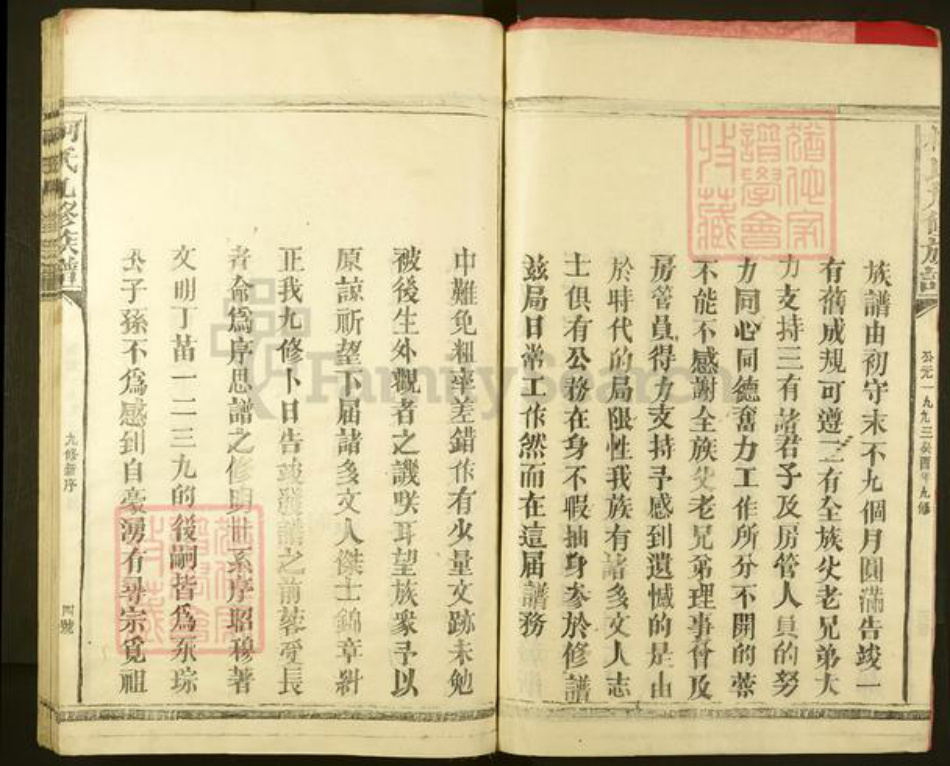 公元一九九三癸酉年九修
族譜由初守末不九個月圓滿告竣一
有舊成規可遵二有全族父老兄弟大
力支持三有諸君子及房管人員的努
力同心同德奮力工作所分不開的
不能不感謝全族父老兄弟理事會及
房管員得力支持予感到遺憾的是由
於時代的局限性我族有諸多文人志
士俱有公務在身不暇抽身參於修譜
茲局日常工作然而在這屆譜務
中難免粗率差錯作有少量文跡未勉
被後生外觀者之譏咲耳望族眾予以
原諒祈望下屆諸多文人傑士錦章糾
正我九修卜日告竣發譜之前蓉愛長
者命爲序思譜之修明世系序昭穆著
文明丁苗一二三九的後嗣皆爲東琮
公子孫不爲感到自豪湧有尋宗覓祖
何氏九修族譜
九修新序
四號
譜學會
收藏
FamilySearch